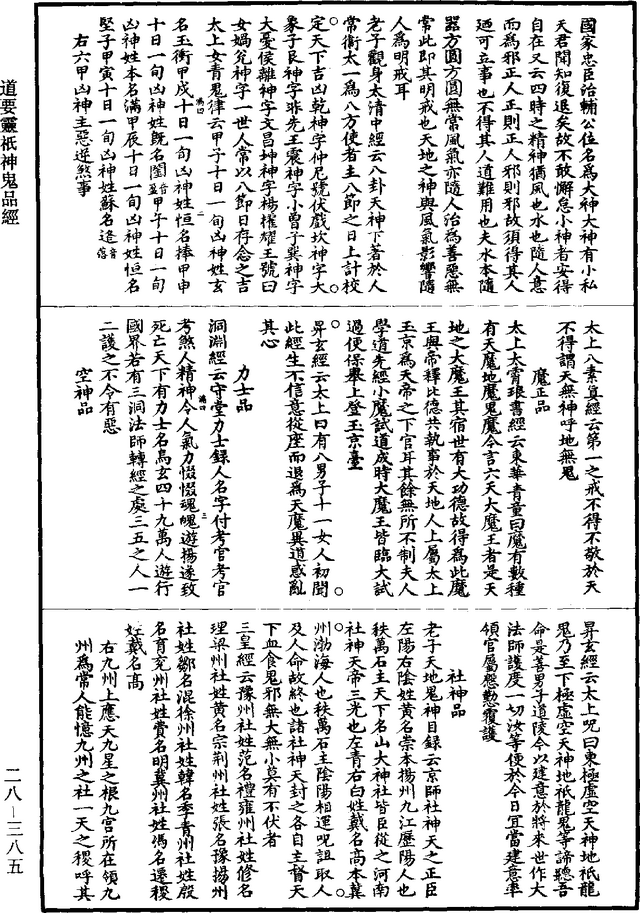 國家忠臣治輔公位名為大神大神有小私
天君聞知復退矣故不敢懈怠小神者安得
自在又云四時之精神猶風也水也隨人意
而為邪正人正則正人邪則邪故須得其人
廼可立事也不得其人道難用也夫水本隨
器方圓方圓無常風氣亦隨人治為善惡無
常此即其明戒也天地之神與風氣影響隨
人為明戒耳
老子觀身太清中經云八卦天神下著於人
常衛太一為八方使者主八節之日上計校
定天下吉凶乾神字仲尼號伏戲坎神字大
象子艮神字非先王震神字小曾子巽神字
大夏侯離神字文昌坤神字楊權耀王號曰
女媧兌神字一世人常以八節日存念之吉
太上女青鬼律云甲子十日一旬凶神姓玄
名玉衡甲戌十日一旬凶神姓恒名捧甲申
十日一旬凶神姓既名闇甲午十日一旬
凶神姓本名滿甲辰十日一旬凶神姓恒名
堅子甲寅十日一旬凶神姓蘇名逵
右六甲凶神主惡逆煞事
太上八素真經云第一之戒不得不敬於天
不得謂天無神呼地無鬼
魔正品
太上太霄琅書經云東華青童曰魔有數種
有天魔地魔鬼魔今言六天大魔王者是天
地之大魔王其宿世有大功德故得為此魔
王與帝釋比德共執事於天地人上屬太上
玉京為天帝之下官耳其餘無所不制夫人
學道先經小魔試道成時大魔王皆臨大試
過便保舉上登玉京臺
昇玄經云太上曰有八男子十一女人初聞
此經生不信意從座而退為天魔異道惑亂
其心
力士品
洞淵經云守堂力士錄人名字付考官考官
考煞人精神令人氣力惙惙魂魄遊揚遂致
死亡天下有力士名烏玄四十九萬人遊行
國界若有三洞法師轉經之處三五之人一
二護之不令有惡
空神品
昇玄經云太上呪曰東極虛空天神地祇龍
鬼乃至下極虛空天神地祇龍鬼等諦聽吾
命是善男子道陵今以建意於將來世作大
法師護度一切汝等便於今日宜當建意率
領官屬慇懃覆護
社神品
老子天地鬼神目錄云京師社神天之正臣
左陽右陰姓黃名崇本揚州九江歷陽人也
秩萬石主天下名山大神社皆臣從之河南
社神天帝三光也左青右白姓戴名高本冀
州渤海人也秩萬石主陰陽相運呪詛取人
及人命故終也諸社神天封之各自主督天
下血食鬼邪無大無小莫有不伏者
三皇經云豫州社姓范名禮雍州社姓修名
理梁州社姓黃名宗荊州社姓張名豫揚州
社姓鄒名混徐州社姓韓名季青州社姓殷
名育兗州社姓費名明冀州社姓馮名遷稷
姓戴名高
右九州上應天九星之根九宮所在領九
州為常人能憶九州之社一天之稷呼其
道要靈祇神鬼品經
二八－三八五